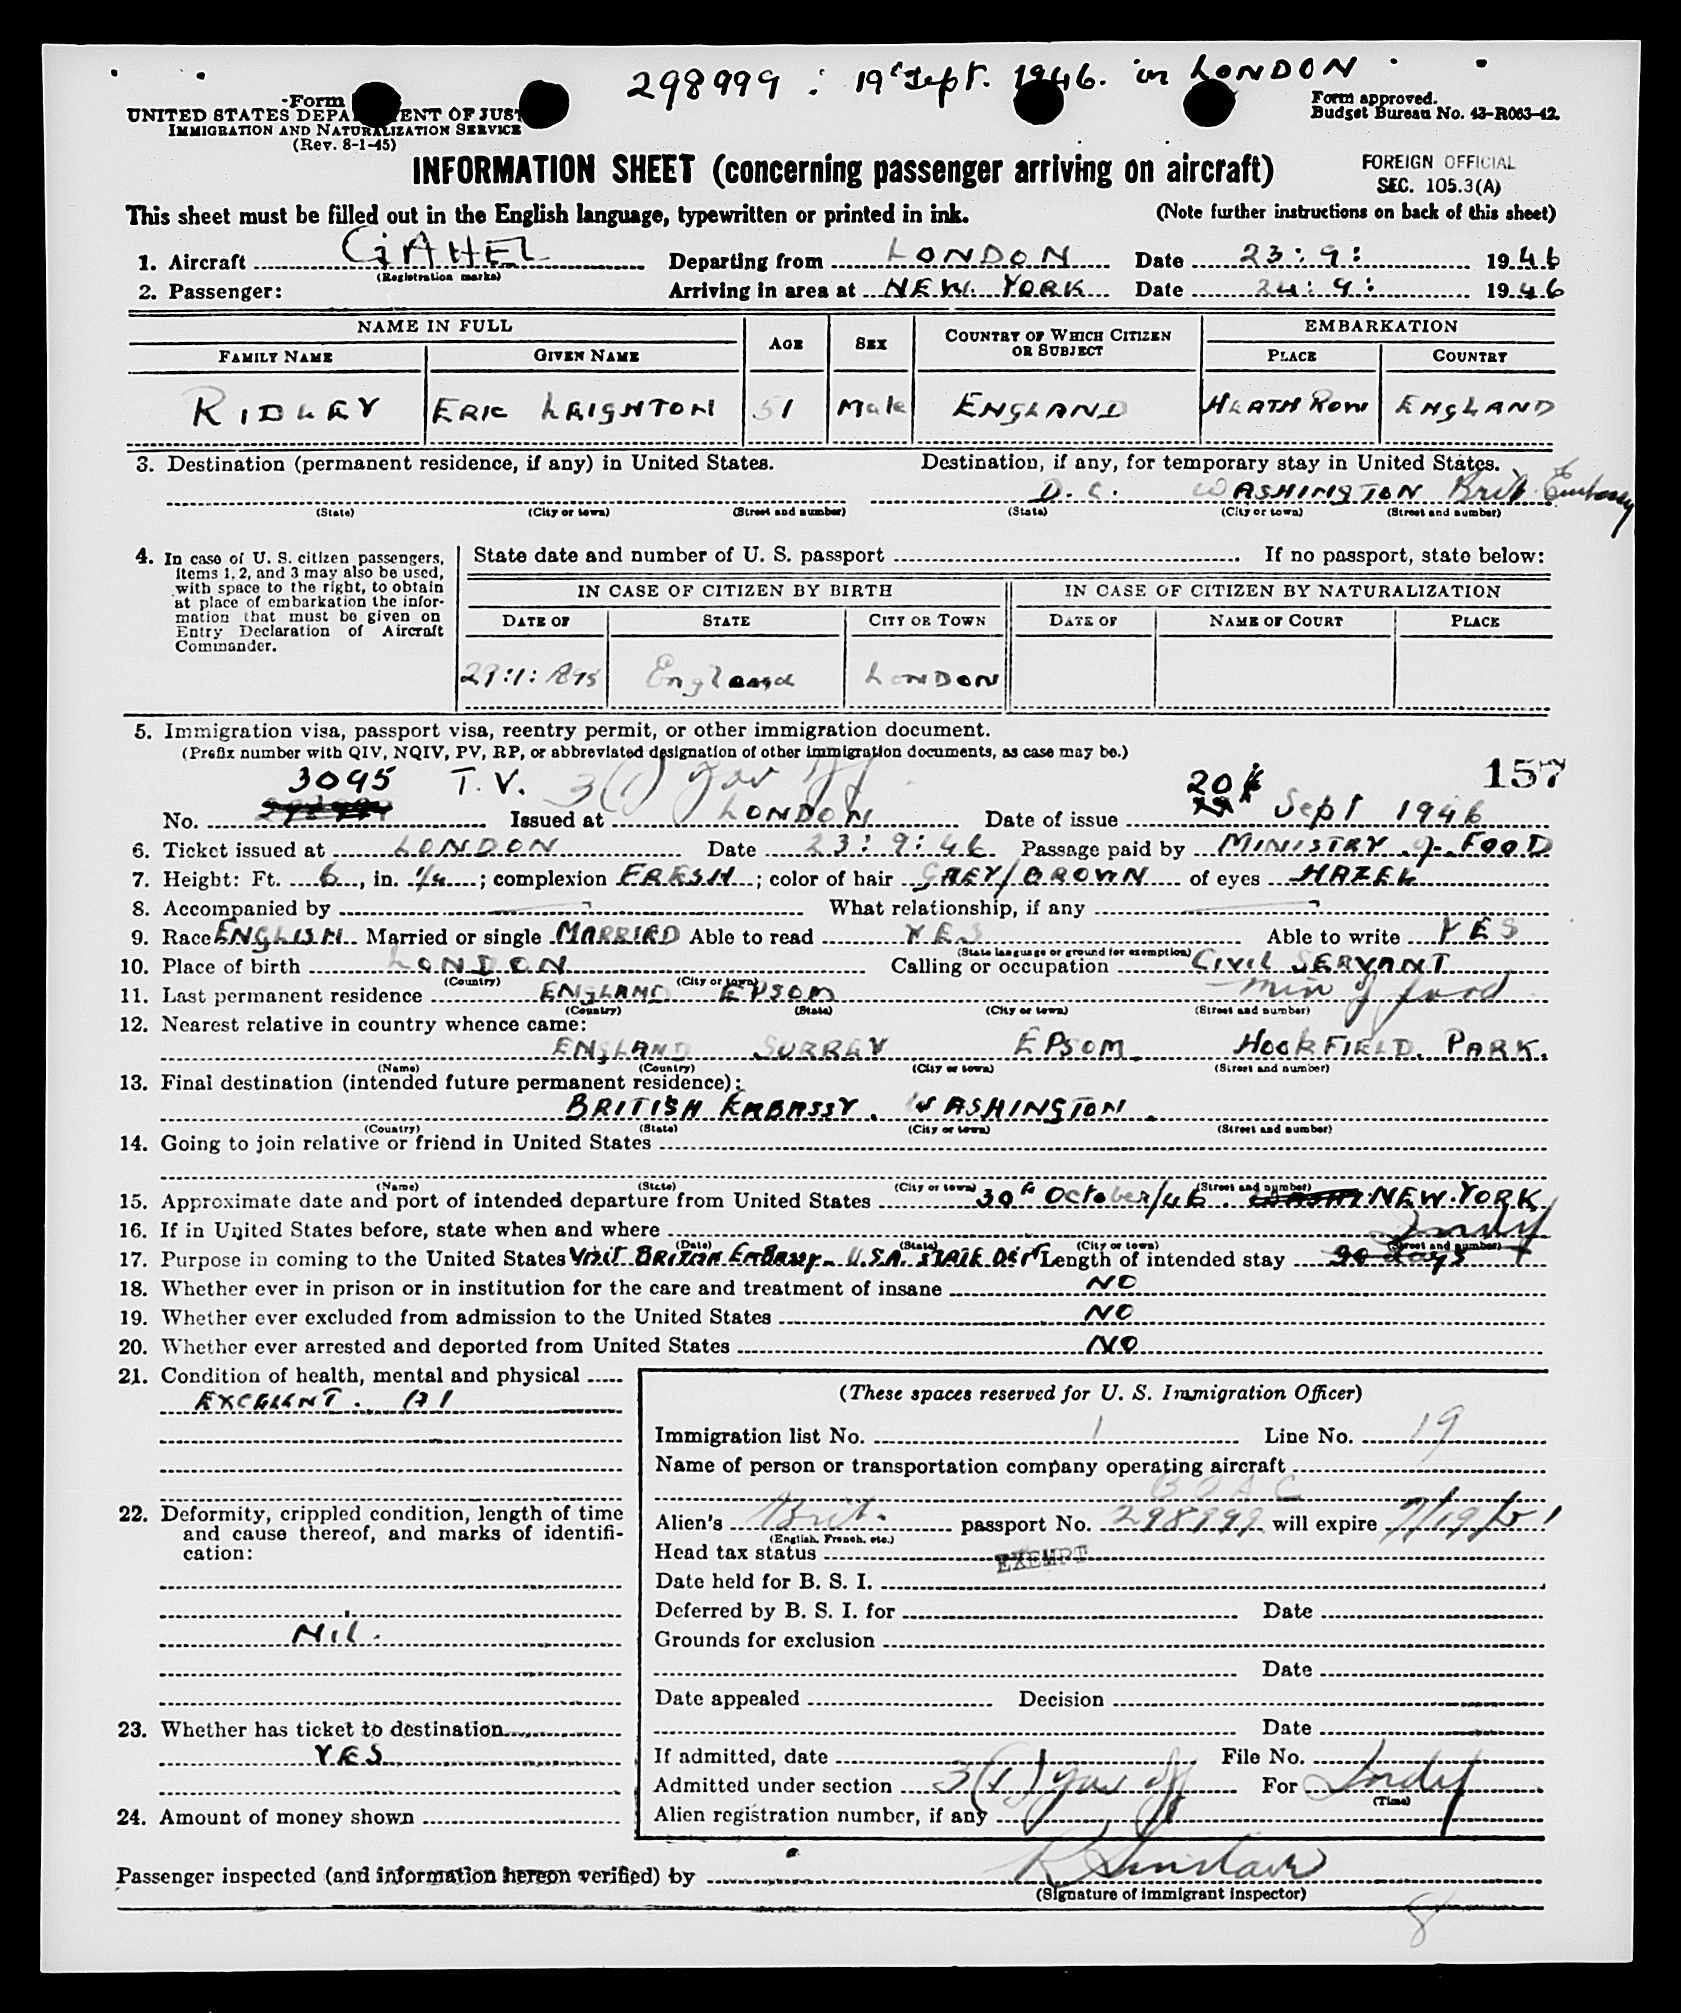 298999 : 19 Sept. 1946. in LONDON
Form
UNITED STATES DEPA ENT OF JUST
IMMIGRATION AND NATURALIZATION SERVICE
(Rev. 8-1-45)
Form approved.
Budget Bureau No. 43-R063-42.
INFORMATION SHEET (concerning passenger arriving on aircraft)
FOREIGN OFFICIAL
SEC. 105.3(A)
This sheet must be filled out in the English language, typewritten or printed in ink.
(Note further instructions on back of this sheet)
1. Aircraft GAHEL Departing from LONDON Date 23:9: 1946
(Registration marks)
2. Passenger: Arriving in area at NEW YORK Date 24:9: 1946
NAME IN FULL AGE SEX COUNTRY OF WHICH CITIZEN OR SUBJECT EMBARKATION
FAMILY NAME GIVEN NAME PLACE COUNTRY
RIDLEY ERIC LEIGHTON 51 Male ENGLAND HEATH ROW ENGLAND
3. Destination (permanent residence, if any) in United States. Destination, if any, for temporary stay in United States.
D.C. WASHINGTON Brit. Embassy
(State) (City or town) (Street and number) (State) (City or town) (Street and number)
4. In case of U. S. citizen passengers,
items 1, 2, and 3 may also be used,
with space to the right, to obtain
at place of embarkation the infor-
mation that must be given on
Entry Declaration of Aircraft
Commander.
State date and number of U. S. passport If no passport, state below:
IN CASE OF CITIZEN BY BIRTH IN CASE OF CITIZEN BY NATURALIZATION
DATE OF STATE CITY OR TOWN DATE OF NAME OF COURT PLACE
29:1:1895 England LONDON
5. Immigration visa, passport visa, reentry permit, or other immigration document.
(Prefix number with QIV, NQIV, PV, RP, or abbreviated designation of other immigration documents, as case may be.)
3095 T.V. 3(1) gov off 157
No. 298999 Issued at LONDON Date of issue 20th Sept 1946
6. Ticket issued at LONDON Date 23:9:46 Passage paid by MINISTRY of FOOD
7. Height: Ft. 6, in. 1/4; complexion FRESH; color of hair GREY/BROWN of eyes HAZEL
8. Accompanied by What relationship, if any
9. Race ENGLISH Married or single MARRIED Able to read YES Able to write YES
(State language or ground for exemption)
10. Place of birth LONDON Calling or occupation CIVIL SERVANT
(Country) (City or town)
min of food
11. Last permanent residence ENGLAND EPSOM
(Country) (State) (City or town) (Street and number)
12. Nearest relative in country whence came:
ENGLAND SURREY EPSOM. HOOKFIELD. PARK.
(Name) (Country) (City or town) (Street and number)
13. Final destination (intended future permanent residence):
BRITISH EMBASSY. WASHINGTON.
(Country) (State) (City or town) (Street and number)
14. Going to join relative or friend in United States
(Name) (State) (City or town) (Street and number)
15. Approximate date and port of intended departure from United States 30th October/46. NEW.YORK.
16. If in United States before, state when and where
(Date) (State) (City or town) (Street and number)
17. Purpose in coming to the United States Visit BRITISH EMBASSY - U.S.A. STATE DEPT Length of intended stay 90 days Indef
18. Whether ever in prison or in institution for the care and treatment of insane NO
19. Whether ever excluded from admission to the United States NO
20. Whether ever arrested and deported from United States NO
21. Condition of health, mental and physical
EXCELLENT. A1
22. Deformity, crippled condition, length of time
and cause thereof, and marks of identifi-
cation:
Nil.
23. Whether has ticket to destination
YES
24. Amount of money shown
(These spaces reserved for U. S. Immigration Officer)
Immigration list No. 1 Line No. 19
Name of person or transportation company operating aircraft
BOAC
Alien's Brit. passport No. 298999 will expire 9/19/51
(English, French, etc.)
Head tax status EXEMPT
Date held for B. S. I.
Deferred by B. S. I. for Date
Grounds for exclusion
Date
Date appealed Decision
Date
If admitted, date File No.
Admitted under section 3(1) gov off For Indef
(Time)
Alien registration number, if any
Passenger inspected (and information hereon verified) by R Sinclair
(Signature of immigrant inspector)
8